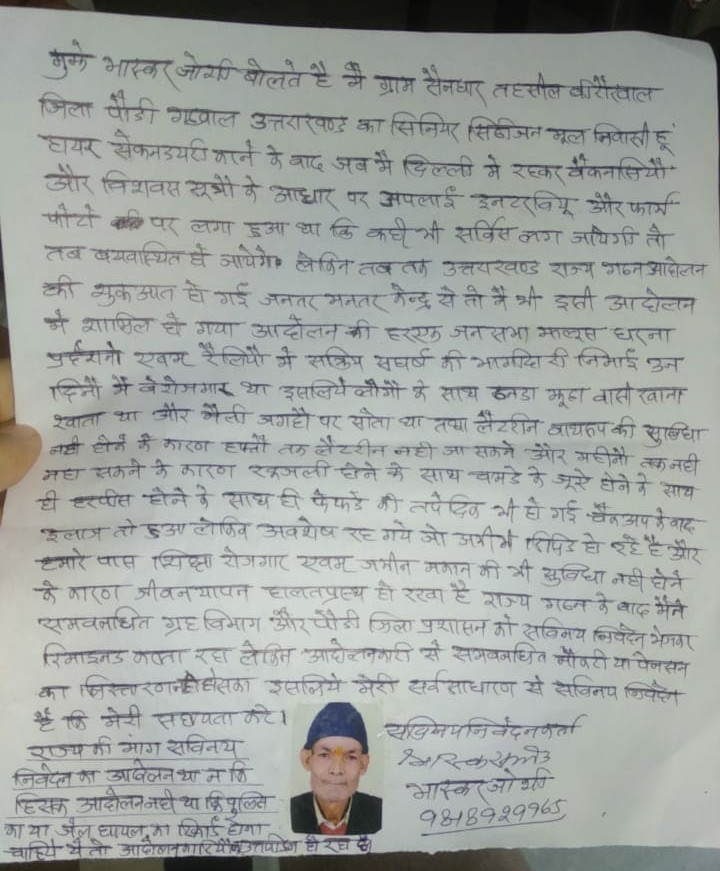 मुझे भास्कर जोशी बोलते है मै ग्राम सैनधार तहसील बीरोंखाल
जिला पौडी गढवाल उत्तराखण्ड का सिनियर सिटीजन मूल निवासी हूं
हायर सेकन्डयरी करने के बाद जब मै दिल्ली मे रहकर वैकनसियों
और विशवस सूत्रौ के आधार पर अपलाई इनटरवियू और फार्म
फोटो पर लगा हुआ था कि कही भी सर्विस लग जायेगी तो
तब वयवास्थित हो जायेगे लेकिन तब तक उत्तराखण्ड राज्य गठन आदोलन
की शुरूआत हो गई जनतर मनतर केन्द्र से तो मै भी इसी आदोलन
मे शामिल हो गया आदोलन की हरएक जन सभा धरना
प्रर्दशनो एवम रैलियौ मे सक्रिय सघर्ष की भागीदारी निभाई उन
दिनौ मै बेरोजगार था इसलिये लौगौ के साथ ठनडा झूठा वासी खाना
खाता था और मैली जगहौ पर सोता था तथा लैटरीन बाथरूम की सुबिधा
नही होने के कारण हफ्तौ तक लैटरीन नही जा सकने और महीनौ तक नही
नहा सकने के कारण खुजली होने के साथ चमडे के होने के साथ
ही होने के साथ ही फेफडे की तपेदिक भी हो गई चैकअप के बाद
इलाज तो हुआ लेकिन अवशेष रह गये जो अभी भी रिपिट हो रहे है और
हमारे पास शिक्षा रोजगार एवम जमीन मकान की भी सुबिधा नही होने
के कारण जीवन यापन हो रखा है राज्य गठन के बाद मैने
समबनधित ग्रह विभाग और पौडी जिला प्रशासन को सविनय निवेदन भेजकर
रिमाइनड करता रहा लेकिन आदोलनकारी से समबनधित नौकरी या पेनसन
का निस्तारण नही होसका इसलिये मेरी सर्व साधारण से सविनय निवेदन
है कि मेरी सहायता करे।
सविनय निवेदन कर्ता
भास्कर जोशी
9818929965
राज्य की मांग सविनय
निवेदन का आदोलन था न कि
हिसक आदोलन नही था कि पुलिस
का या जेल घायल का रिकार्ड होना
चाहिये ये तो आदोलनकारियौ का उतपीडन हो रहा है।